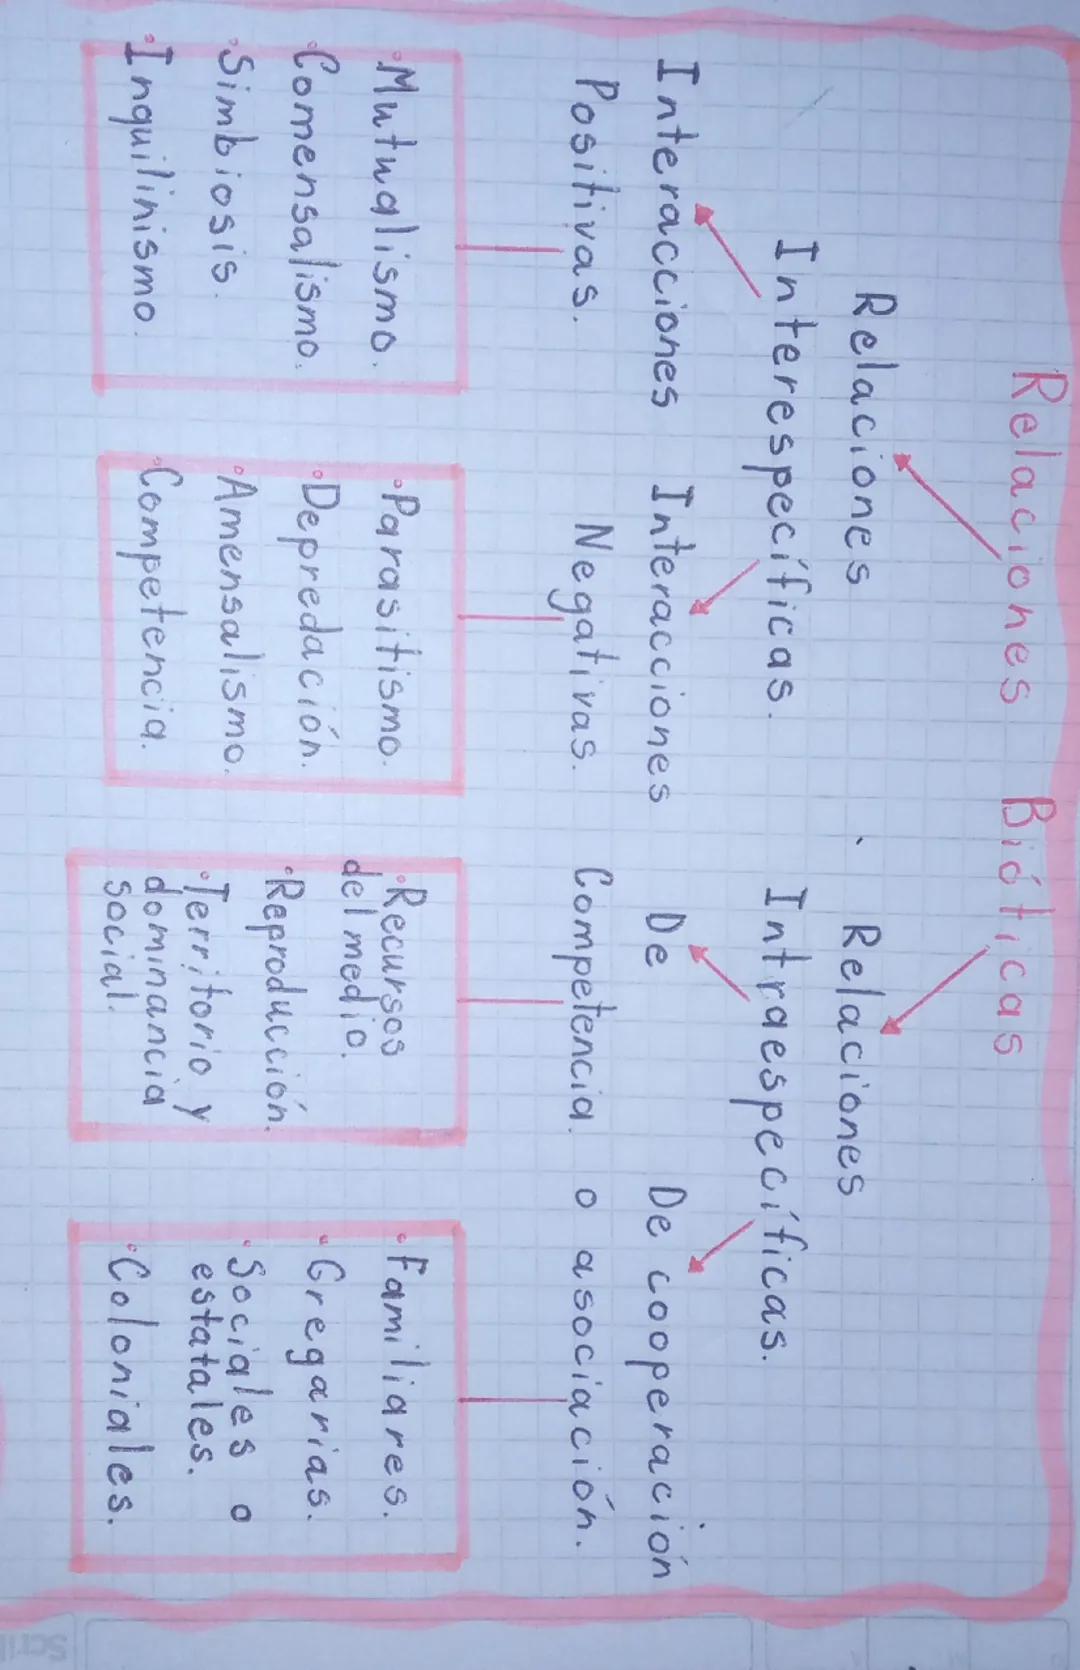 Relaciones Bióticas
Relaciones
Interespecíficas.
Relaciones
Intraespecíficas.
Interacciones
Positivas.
Interacciones
Negativas.
De
Competencia.
De cooperación
o asociación.
•Mutualismo.
•Comensalismo.
•Simbiosis.
•Inquilinismo.
•Parasitismo.
•Depredación.
•Amensalismo.
•Competencia.
•Recursos
del medio.
•Reproducción.
•Territorio y
dominancia
social.
•Familiares.
•Gregarias.
•Sociales o
estatales.
•Coloniales.